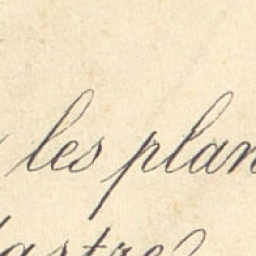 les plan
astre